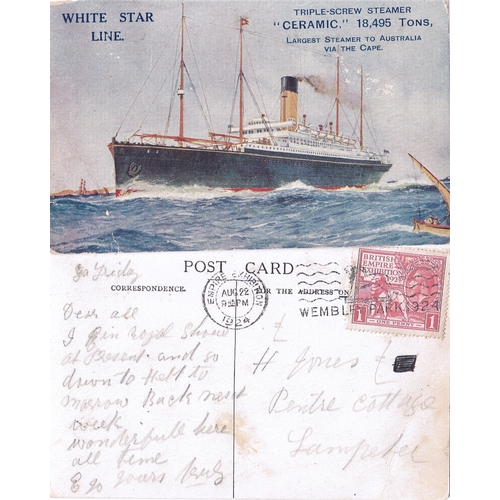 WHITE STAR
LINE.
TRIPLE-SCREW STEAMER
"CERAMIC," 18,495 TONS,
LARGEST STEAMER TO AUSTRALIA
VIA THE CAPE.
POST CARD
CORRESPONDENCE.
FOR THE ADDRESS ON
EMPIRE EXHIBITION
AUG 22
PM
1924
WEMBLEY PARK 1924
BRITISH
EMPIRE
EXHIBITION
1
ONE PENNY
1
Friday
Dear all
I
at Present and so
down to
morrow Back next
week
wonderfull here
all time
yours
H Jones
Pentre Cottage
Lampeter